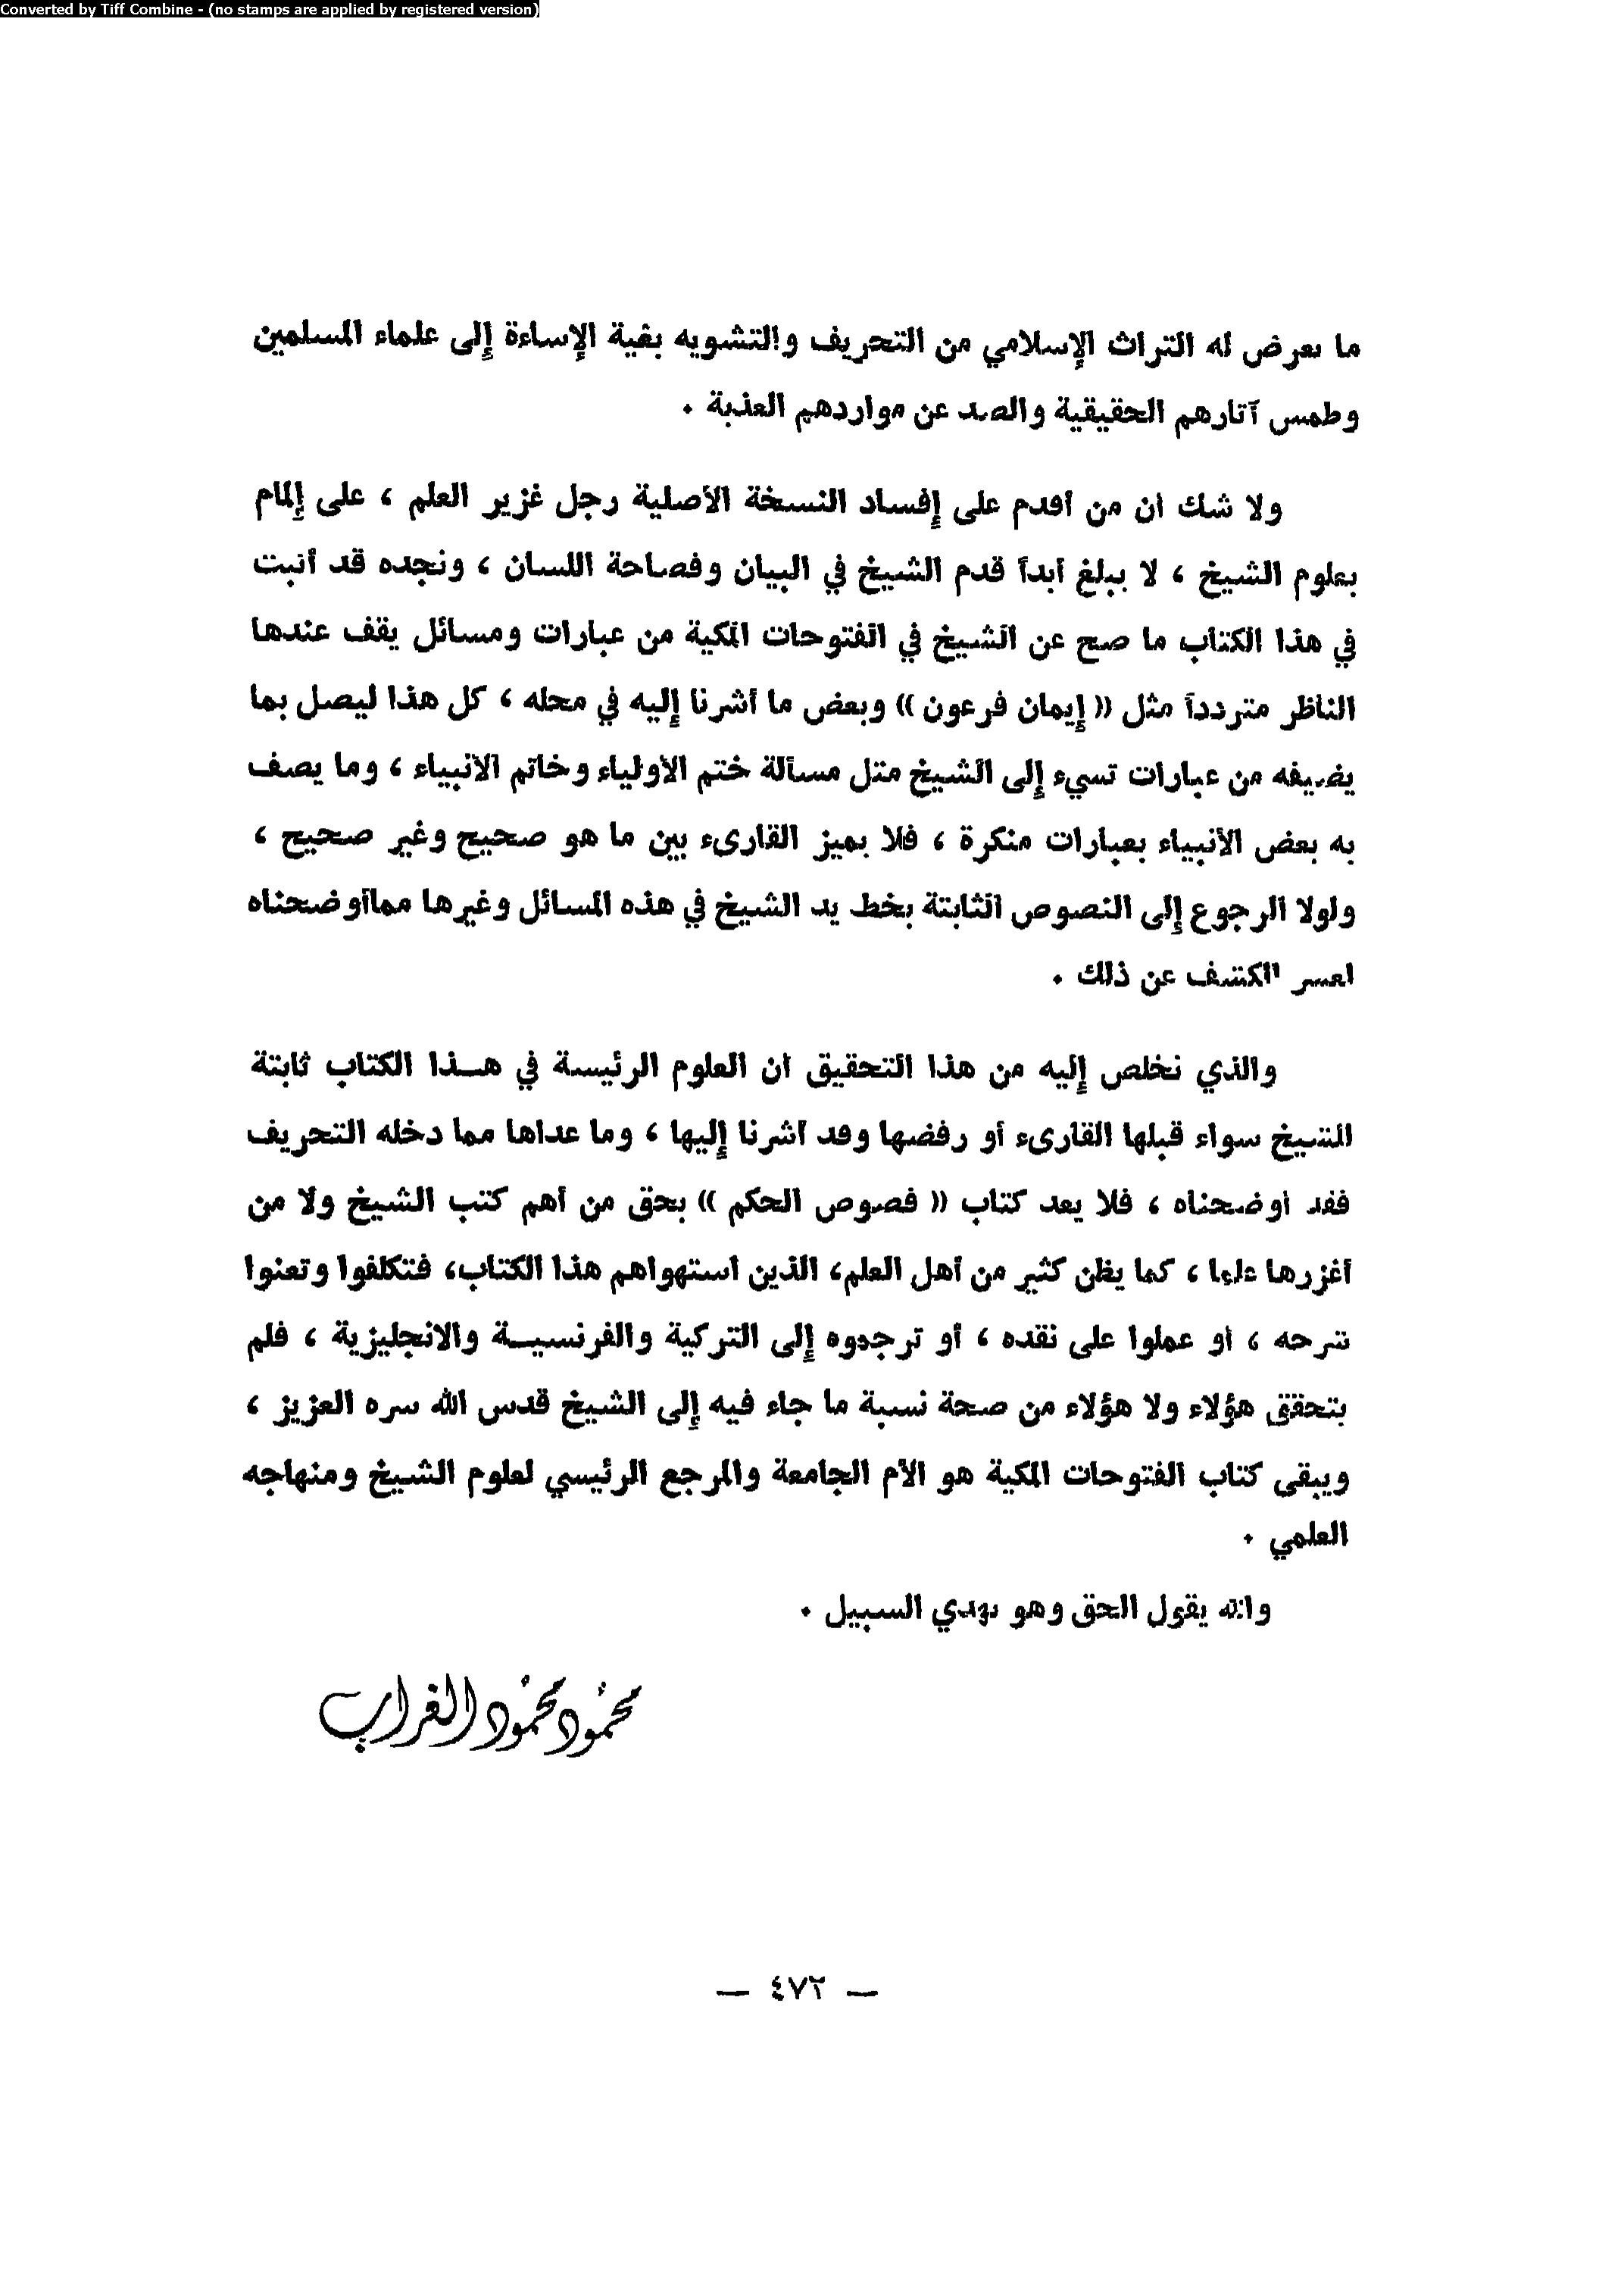 Converted by Tiff Combine - (no stamps are applied by registered version)
ما تعرض له التراث الإسلامي من التحريف والتشويه بغية الإساءة إلى علماء المسلمين
وطمس آثارهم الحقيقية والصد عن مواردهم العذبة .
ولا شك أن من أقدم على إفساد النسخة الأصلية رجل غزير العلم ، على إلمام
بعلوم الشيخ ، لا يبلغ أبداً قدم الشيخ في البيان وفصاحة اللسان ، ونجده قد أثبت
في هذا الكتاب ما صح عن الشيخ في الفتوحات المكية من عبارات ومسائل يقف عندها
الناظر متردداً مثل (( إيمان فرعون )) وبعض ما أشرنا إليه في محله ، كل هذا ليصل بما
يضيفه من عبارات تسيء إلى الشيخ مثل مسألة ختم الأولياء وخاتم الأنبياء ، وما يصف
به بعض الأنبياء بعبارات منكرة ، فلا يميز القارىء بين ما هو صحيح وغير صحيح ،
ولولا الرجوع إلى النصوص الثابتة بخط يد الشيخ في هذه المسائل وغيرها مماأوضحناه
لعسر الكشف عن ذلك .
والذي نخلص إليه من هذا التحقيق أن العلوم الرئيسة في هـذا الكتاب ثابتة
للشيخ سواء قبلها القارىء أو رفضها وقد أشرنا إليها ، وما عداها مما دخله التحريف
فقد أوضحناه ، فلا يعد كتاب (( فصوص الحكم )) بحق من أهم كتب الشيخ ولا من
أغزرها علما ، كما يظن كثير من أهل العلم، الذين استهواهم هذا الكتاب، فتكلفوا وتعنوا
شرحه ، أو عملوا على نقده ، أو ترجموه إلى التركية والفرنسيـة والانجليزية ، فلم
يتحقق هؤلاء ولا هؤلاء من صحة نسبة ما جاء فيه إلى الشيخ قدس الله سره العزيز ،
ويبقى كتاب الفتوحات المكية هو الأم الجامعة والمرجع الرئيسي لعلوم الشيخ ومنهاجه
العلمي .
والله يقول الحق وهو يهدي السبيل .
محمود محمود الغراب
— ٤٧٢ —